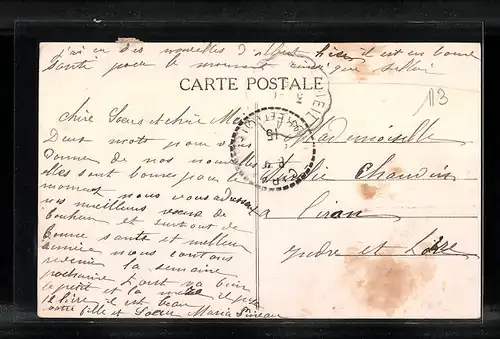 j'ai eu des nouvelles d'albert hier il est en bonne
Santé pour le moment ainsi que
CARTE POSTALE
113
chère Soeur et chère
Deux mots pour vous
Donner de nos nouvelles
elles sont bonnes pour le
moment nous vous adressons
nos meilleurs voeux de
bonheur et surtout de
bonne santé et meilleur
année nous contons
revenir la semaine
prochaine tout va bien
le petit et la
le lire il est beau
votre fille et Soeur Maria Pineau
Mademoiselle
Chauvin
a Ciran
indre et Loire